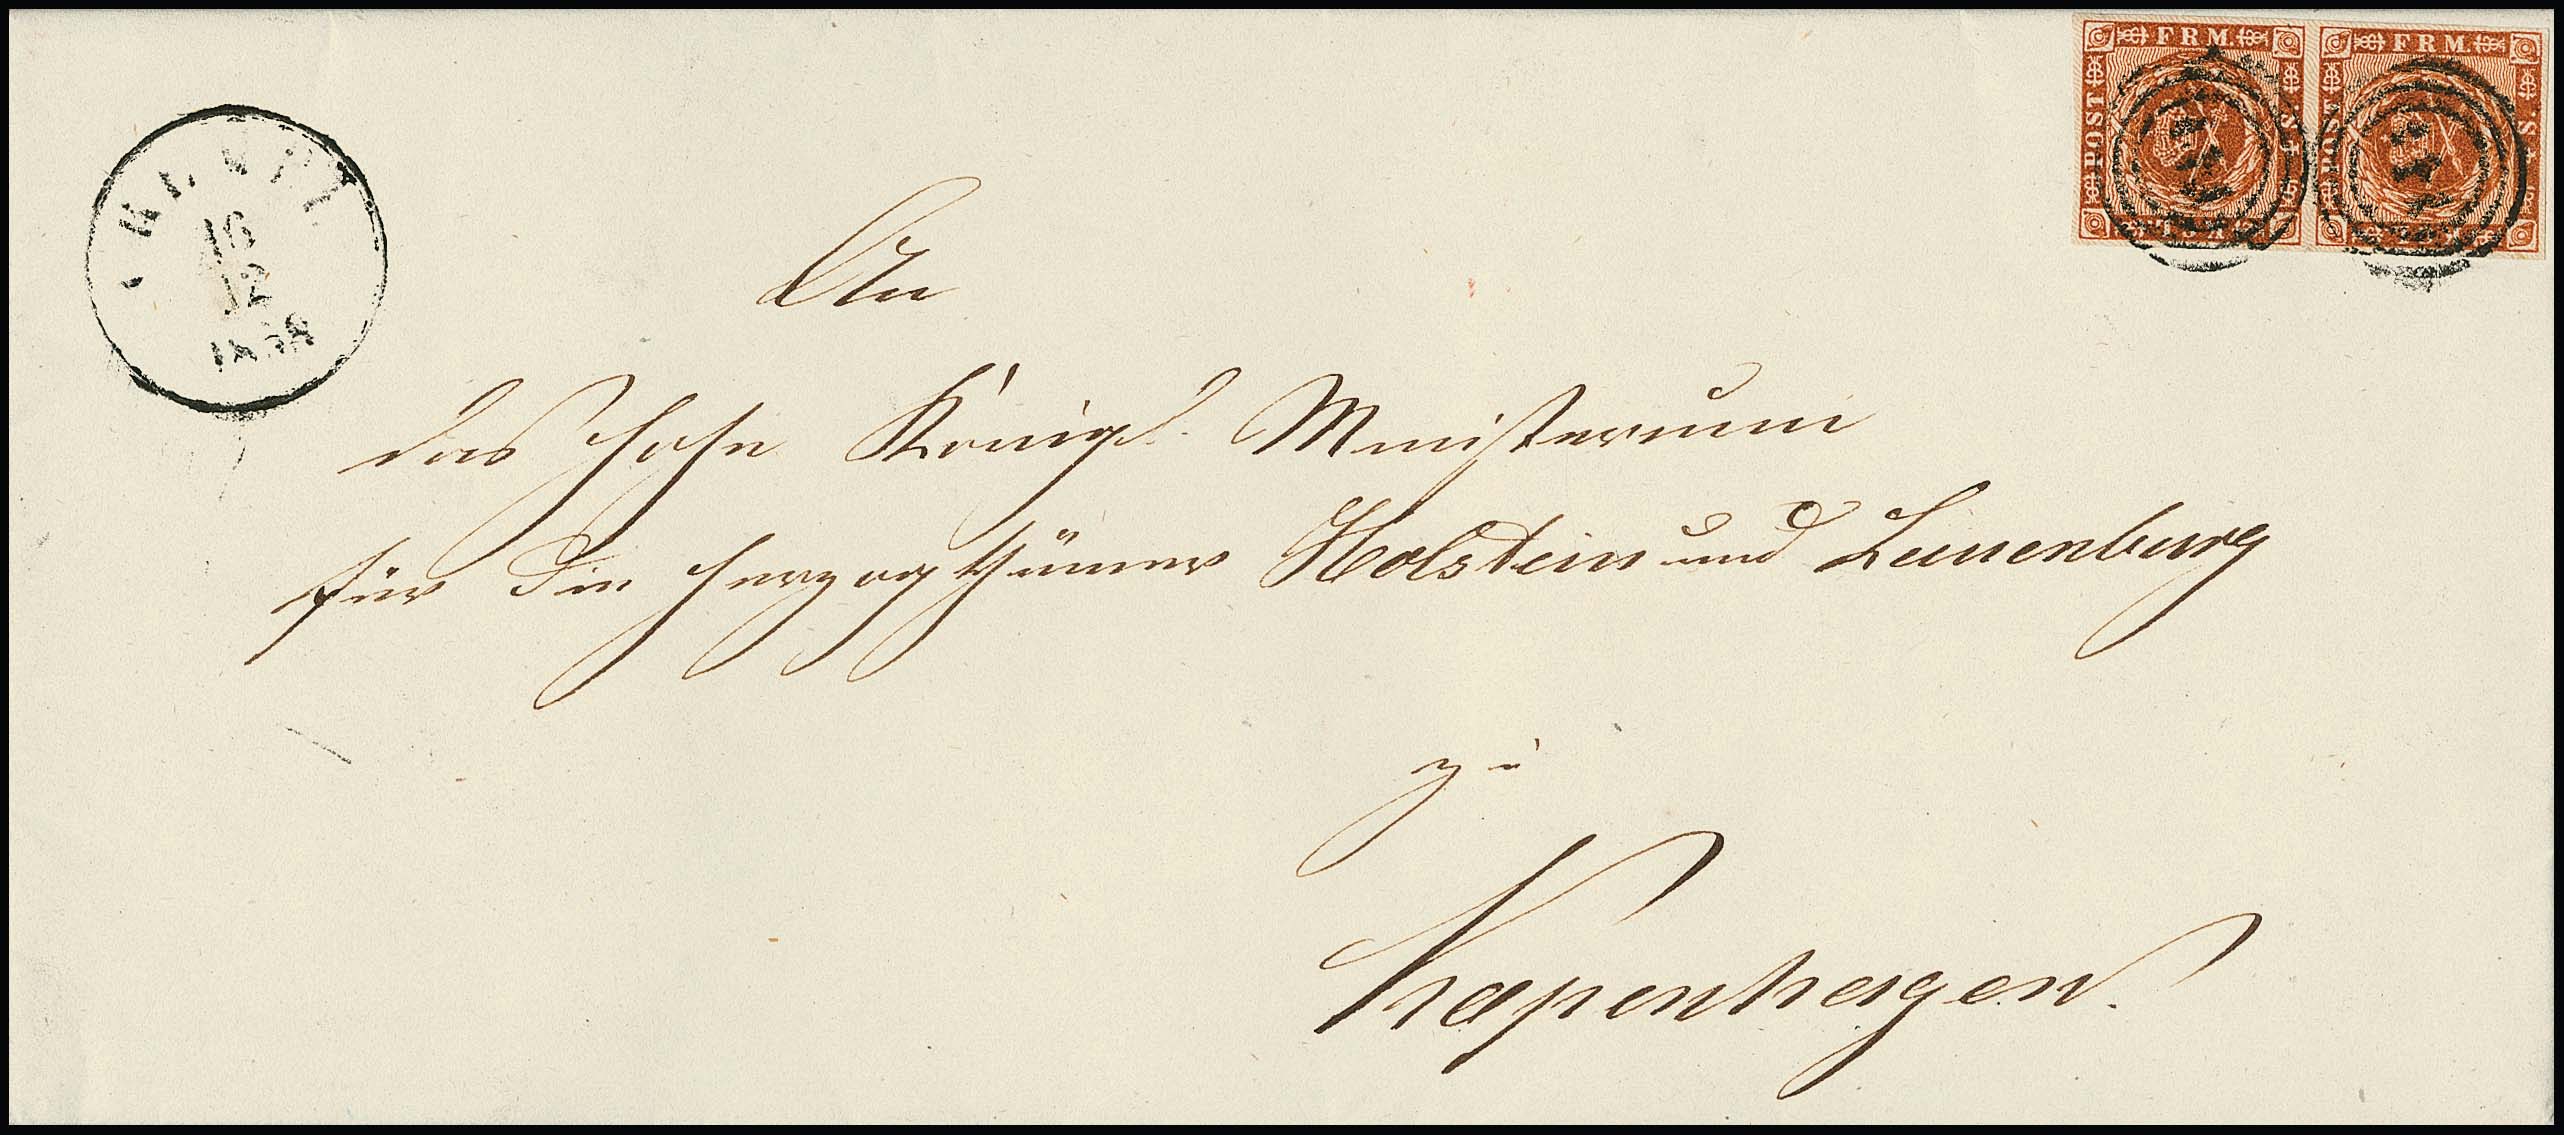 FRM. FRM.
POST POST
4 S. 4 S.
K.G.L. K.G.L.
16
12
1858
An
das hohe Königl. Ministerium
für die Herzogthümer Holstein und Lauenburg
zu
Kopenhagen.